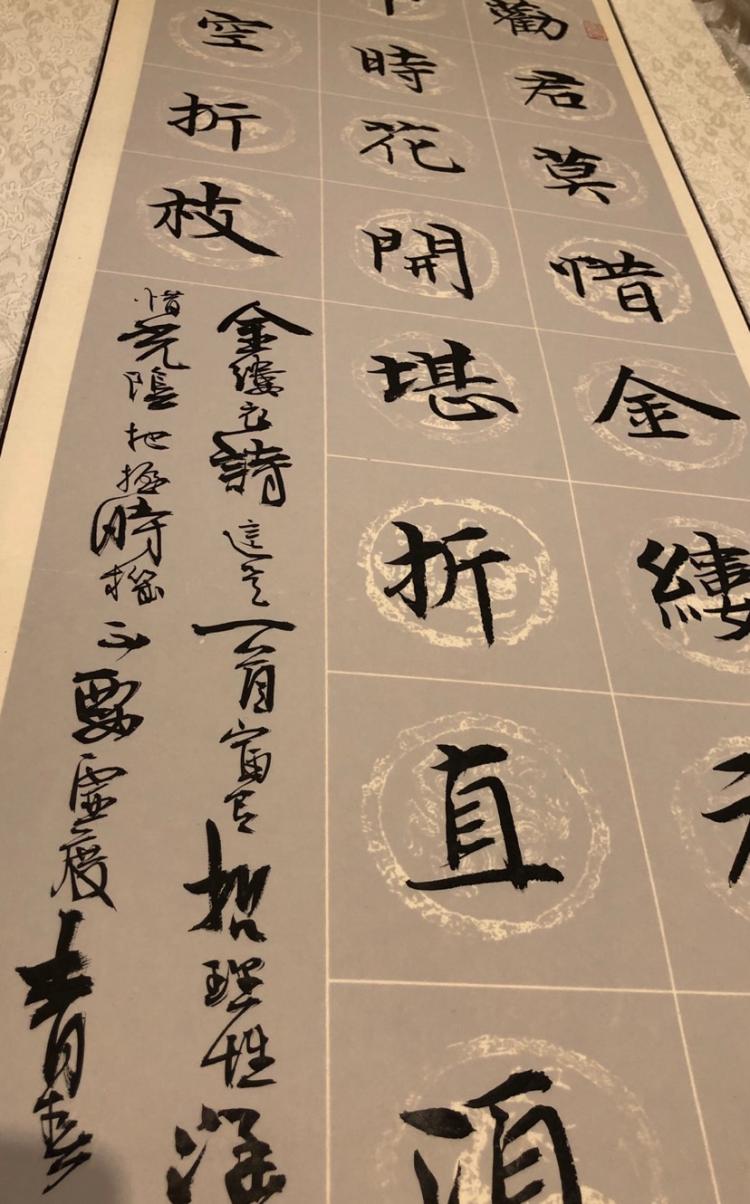 勸君莫惜金縷
時花開堪折直須
空折枝
金縷衣詩這是一首富哲理性深
惜光陰把握時機不要虛度青春